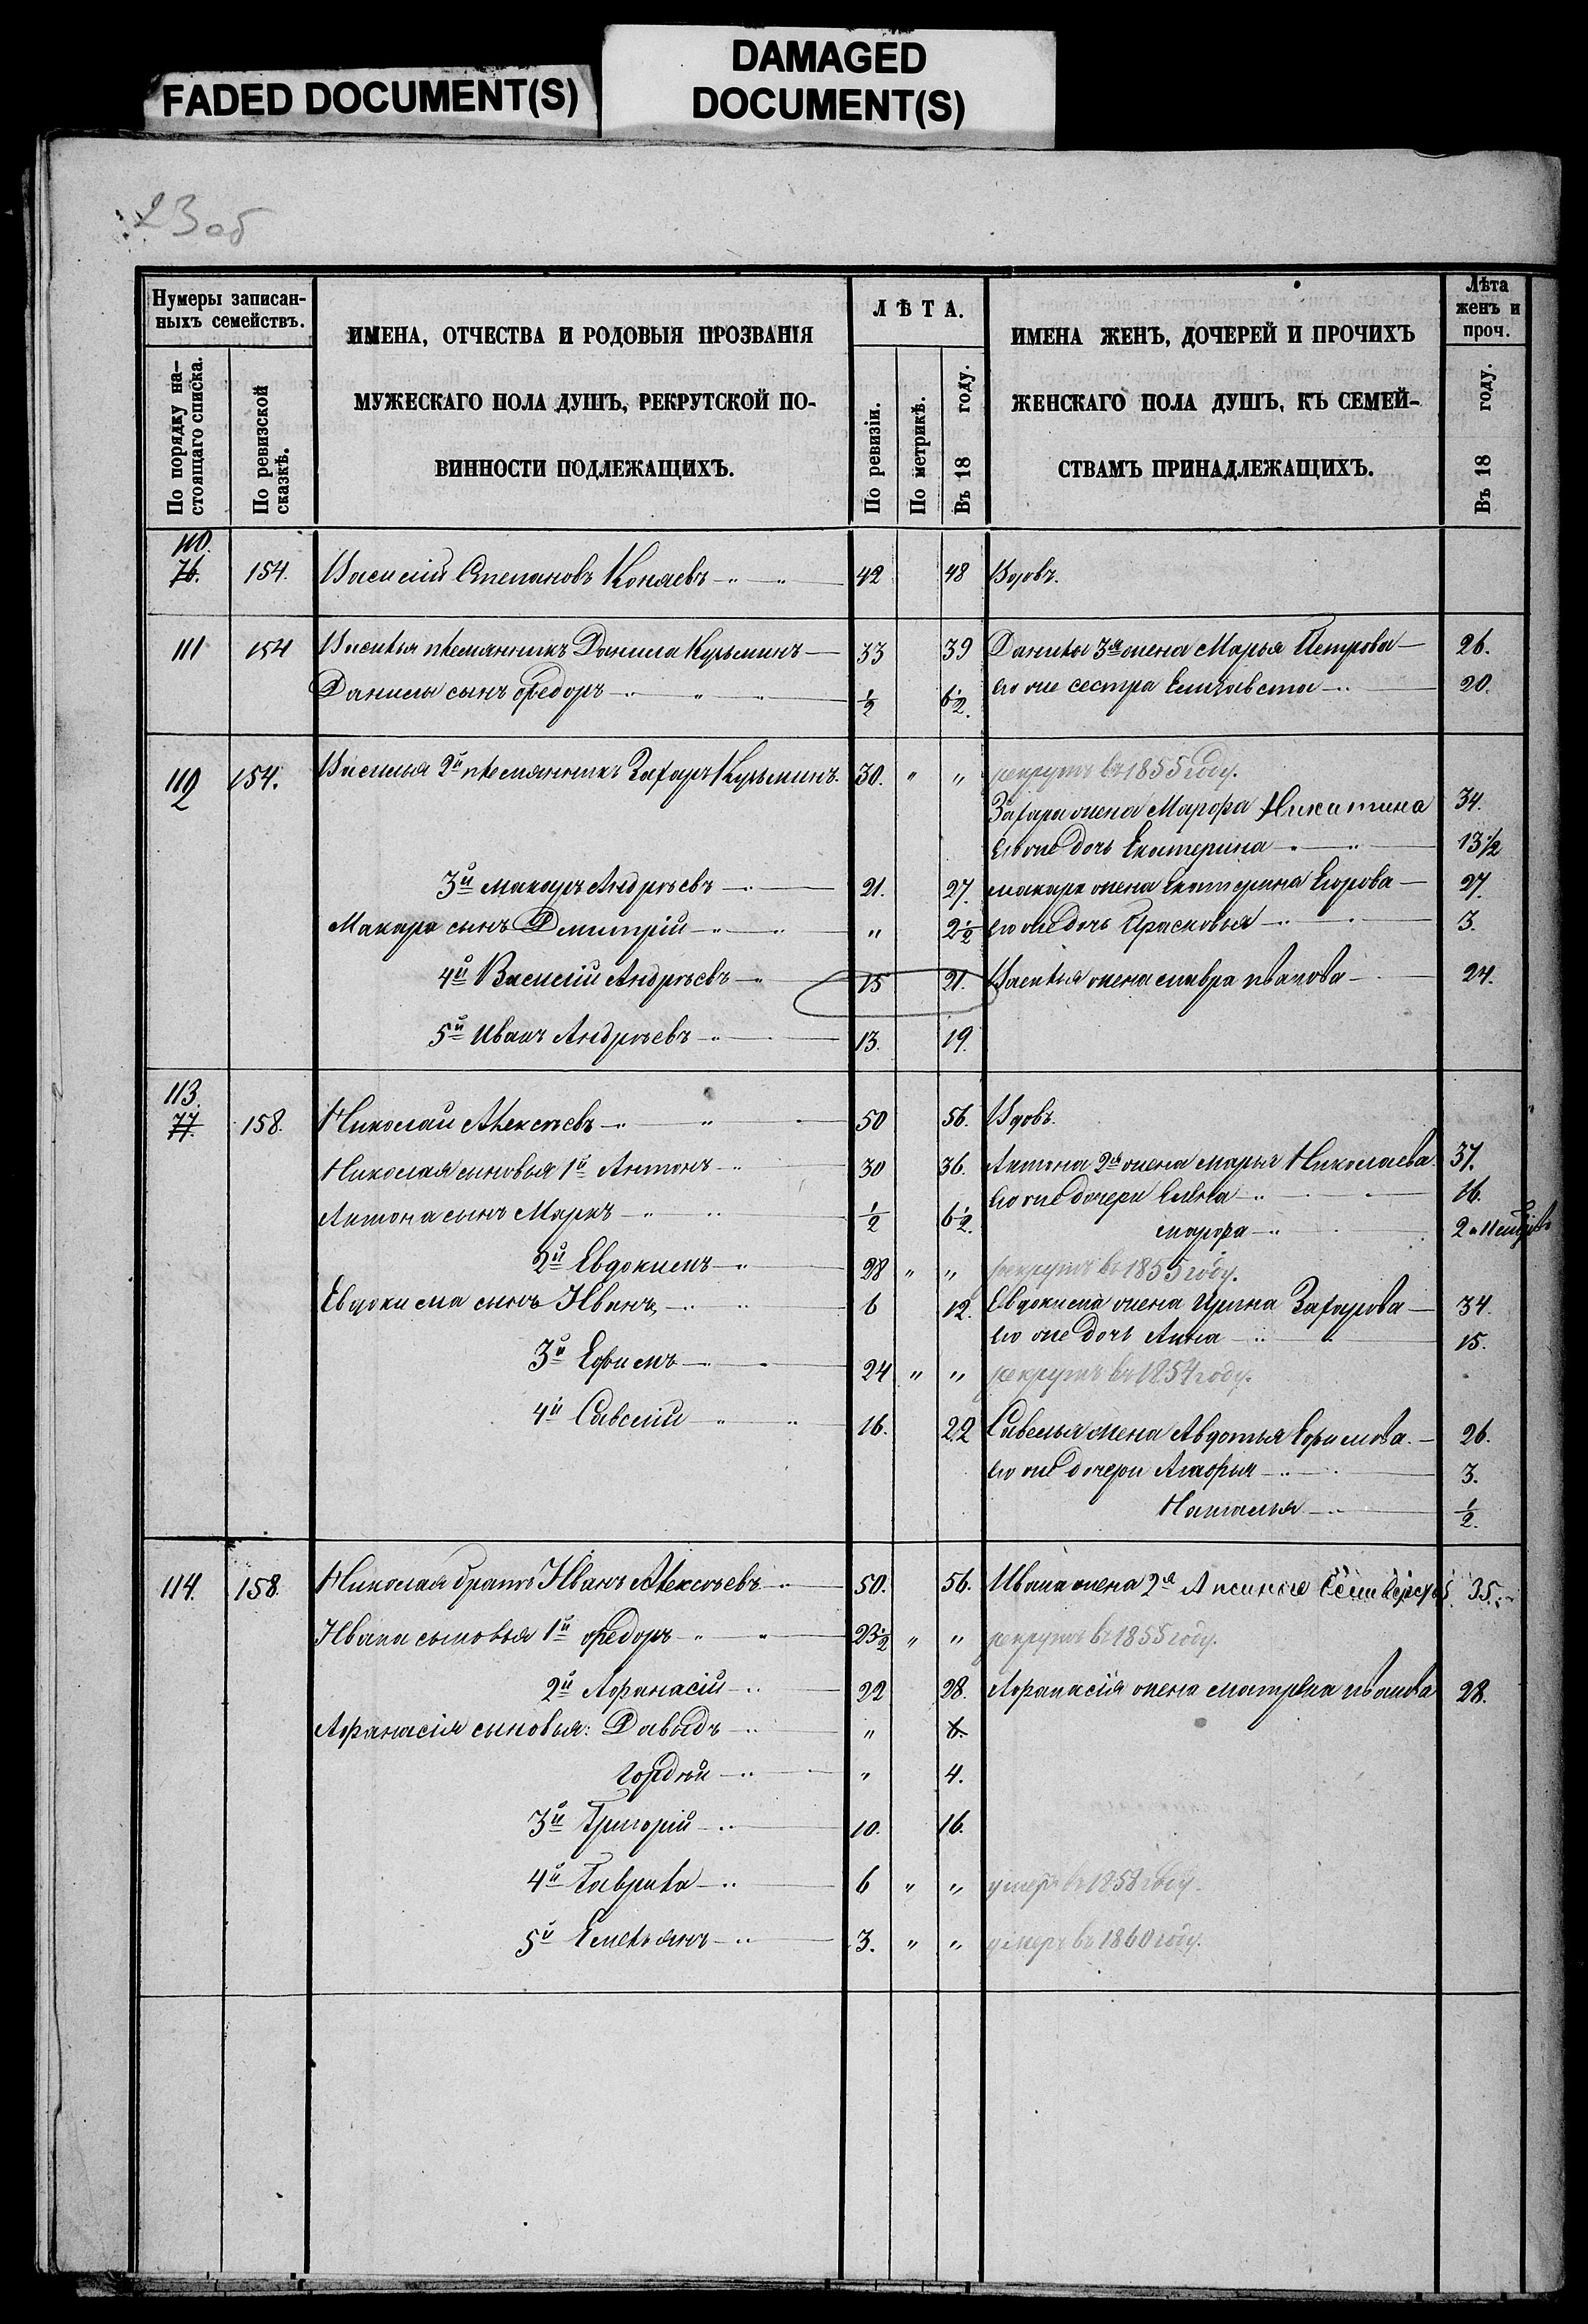 FADED DOCUMENT(S)
DAMAGED
DOCUMENT(S)
23 об
Нумеры записан-
ныхъ семействъ.
По порядку на-
стоящаго списка.
По ревизской
сказкѣ.
ИМЕНА, ОТЧЕСТВА И РОДОВЫЯ ПРОЗВАНІЯ
МУЖЕСКАГО ПОЛА ДУШЪ, РЕКРУТСКОЙ ПО-
ВИННОСТИ ПОДЛЕЖАЩИХЪ.
ЛѢТА.
По ревизіи.
По метрикѣ.
Въ 18 году.
ИМЕНА ЖЕНЪ, ДОЧЕРЕЙ И ПРОЧИХЪ
ЖЕНСКАГО ПОЛА ДУШЪ, КЪ СЕМЕЙ-
СТВАМЪ ПРИНАДЛЕЖАЩИХЪ.
Лѣта
женъ и
проч.
Въ 18 году.
110.
76. 154. Василій Степановъ Коняевъ 42 48 Вдовъ.
111 154 Василья племянникъ Данила Кузьминъ 33 39 Данилы 3я жена Марья Петрова 26.
Данилы сынъ Федоръ 1/2 6 1/2. его же сестра Елизавета 20.
112 154. Василья 2й племянникъ Захаръ Кузьминъ. 30. " " рекрутъ въ 1855 году.
Захара жена Марфа Никитина 34.
его же дочь Екатерина 13 1/2
3й Макаръ Андреевъ 21. 27. Макара жена Екатерина Егорова 27.
Макара сынъ Дмитрій " 2 1/2 его же дочь Прасковья 3.
4й Василій Андреевъ 15 21. Василья жена Мавра Иванова 24.
5й Иванъ Андреевъ 13. 19.
113.
77. 158. Николай Алексѣевъ 50 56. Вдовъ.
Николая сыновья 1й Антонъ 30 36. Антона 2я жена Марья Николаева. 37.
его же дочери Елена 16.
Антона сынъ Маркъ 1/2 6 1/2.
Марфа 2 и 11
2й Евдокимъ 28 " " рекрутъ въ 1855 году.
Евдокима сынъ Иванъ 6 12. Евдокима жена Ирина Захарова 34.
его же дочь Анна 15.
3й Ефимъ 24 " " рекрутъ въ 1854 году.
4й Савелій 16. 22 Савелья жена Авдотья Ефимова. 26.
его же дочери 3.
Наталья 1/2.
114. 158. Николая братъ Иванъ Алексѣевъ 50. 56. Ивана жена 2я Аксинья 35.
Ивана сыновья 1й Федоръ 23 1/2 " " рекрутъ въ 1855 году.
2й Афанасій 22 28. Афанасія жена Матрена Иванова 28.
Афанасія сыновья: Давыдъ " 6.
Гордѣй " 4.
3й Григорій 10. 16.
4й Гаврила 6 " " умеръ въ 1858 году.
5й Емельянъ 3. " " умеръ въ 1860 году.